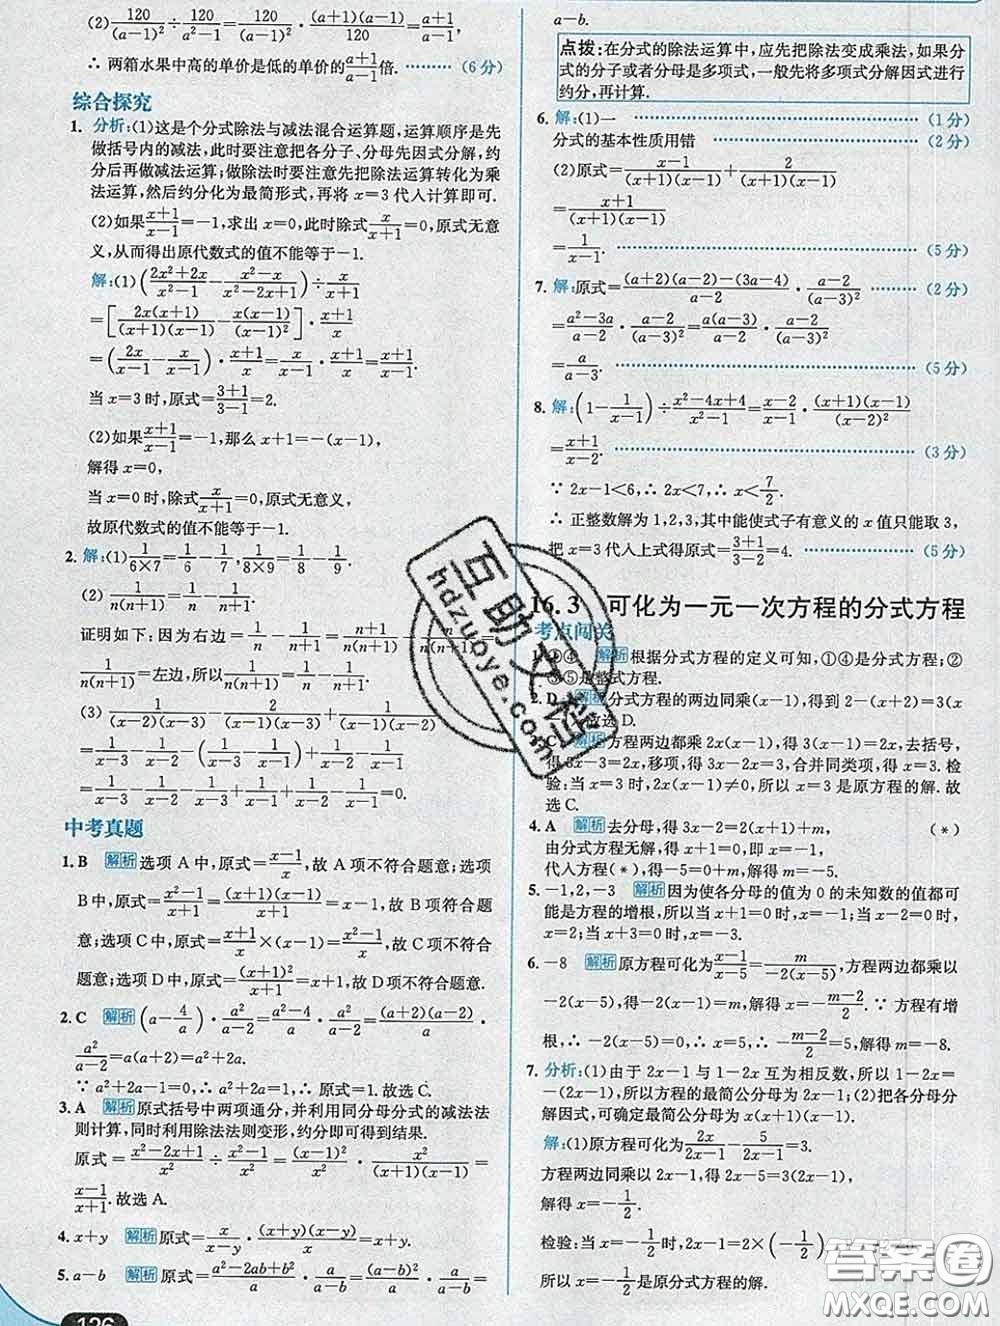 (2) 120/(a-1)² ÷ 120/(a²-1) = 120/(a-1)² · (a+1)(a-1)/120,
∴ 两箱水果中高的单价是低的单价的(a+1)/(a-1)倍. ……… (6分)
综合探究
1. 分析:(1)这是个分式除法与减法混合运算题,运算顺序是先
做括号内的减法,此时要注意把各分子、分母先因式分解,约
分后再做减法运算;做除法时要注意先把除法运算转化为乘
法运算,然后约分化为最简形式,再将 x=3 代入计算即可.
(2)如果(x+1)/(x-1)=-1,求出 x=0,此时除式x/(x+1)=0,原式无意
义,从而得出原代数式的值不能等于-1.
解:(1)((2x²+2x)/(x²-1) - (x²-x)/(x²-2x+1)) ÷ x/(x+1)
=[2x(x+1)/((x+1)(x-1)) - x(x-1)/(x-1)²] · (x+1)/x
=(2x/(x-1) - x/(x-1)) · (x+1)/x = x/(x-1) · (x+1)/x = (x+1)/(x-1).
当 x=3 时,原式=(3+1)/(3-1)=2.
(2)如果(x+1)/(x-1)=-1,那么 x+1=-(x-1),
解得 x=0,
当 x=0 时,除式x/(x+1)=0,原式无意义,
故原代数式的值不能等于-1.
2. 解:(1)1/(6×7)=1/6-1/7,1/(8×9)=1/8-1/9.
(2) 1/(n(n+1))=1/n-1/(n+1).
证明如下:因为右边=1/n-1/(n+1)=(n+1)/(n(n+1))-n/(n(n+1))=
1/(n(n+1))=左边,所以1/(n(n+1))=1/n-1/(n+1).
(3) 1/((x-2)(x-3)) - 2/((x-1)(x-3)) + 1/((x-1)(x-2))
=1/(x-3)-1/(x-2)-(1/(x-3)-1/(x-1))+1/(x-2)-1/(x-1)
=1/(x-3)-1/(x-2)-1/(x-3)+1/(x-1)+1/(x-2)-1/(x-1)=0.
中考真题
1. B 解析 选项 A 中,原式=(x-1)/x,故 A 项不符合题意;选项
B 中,原式=(x²-1)/(x+1)=(x+1)(x-1)/(x+1)=x-1,故 B 项符合题
意;选项 C 中,原式=(x+1)/x×(x-1)=(x²-1)/x,故 C 项不符合
题意;选项 D 中,原式=(x+1)²/(x+1)=x+1,故 D 项不符合题意.
2. C 解析 (a-4/a) · a²/(a-2)=(a²-4)/a · a²/(a-2)=(a+2)(a-2)/a ·
a²/(a-2)=a(a+2)=a²+2a.
∵ a²+2a-1=0,∴ a²+2a=1,∴ 原式=1.故选 C.
3. A 解析 原式括号中两项通分,并利用同分母分式的减法法
则计算,同时利用除法法则变形,约分即可得到结果.
原式=(x²-2x+1)/x² ÷ (x²-1)/x²=(x-1)²/x² · x²/((x+1)(x-1))=
(x-1)/(x+1).故选 A.
4. x+y 解析 原式=x/(x-y) · (x+y)(x-y)/x=x+y.
5. a-b 解析 原式=(a²-2ab+b²)/a · a/(a-b)=(a-b)²/a · a/(a-b)=
126
a-b.
点拨:在分式的除法运算中,应先把除法变成乘法,如果分
式的分子或者分母是多项式,一般先将多项式分解因式进行
约分,再计算.
6. 解:(1)一 ……… (1分)
分式的基本性质用错 ……… (2分)
(2)原式=(x-1)/((x+1)(x-1))+2/((x+1)(x-1))
=(x+1)/((x+1)(x-1))
=1/(x-1). ……… (5分)
7. 解:原式=((a+2)(a-2)-(3a-4))/(a-2) · (a-2)/(a-3)² ……… (2分)
=(a²-3a)/(a-2) · (a-2)/(a-3)²=a(a-3)/(a-2) · (a-2)/(a-3)²
=a/(a-3). ……… (5分)
8. 解:(1-1/(x-1))÷(x²-4x+4)/(x²-1)=(x-2)/(x-1) · (x+1)(x-1)/(x-2)²
=(x+1)/(x-2). ……… (3分)
∵ 2x-1<6,∴ 2x<7,∴ x<7/2.
∴ 正整数解为 1,2,3,其中能使式子有意义的 x 值只能取 3,
把 x=3 代入上式得原式=(3+1)/(3-2)=4. ……… (5分)
16.3 可化为一元一次方程的分式方程
考点闯关
1. ①④ 解析 根据分式方程的定义可知,①④是分式方程;②
③⑤是整式方程.
2. D 解析 分式方程的两边同乘(x-1),得到 2-(x+2)=3(x
故选 D.
3. C 解析 方程两边都乘 2x(x-1),得 3(x-1)=2x,去括号,
得 3x-3=2x,移项,得 3x-2x=3,合并同类项,得 x=3. 检
验:当 x=3 时,2x(x-1)≠0,所以 x=3 是原方程的解.故
选 C.
4. A 解析 去分母,得 3x-2=2(x+1)+m, (*)
由分式方程无解,得 x+1=0,即 x=-1,
代入方程(*),得-5=0+m,解得 m=-5.
5. -1,2,-3 解析 因为使各分母的值为 0 的未知数的值都可
能是方程的增根,所以当 x+1=0 时,x=-1;当 x-2=0 时,
x=2;当 x+3=0 时,x=-3.
6. -8 解析 原方程可化为(x-1)/(x-5)=(-m-2)/(-2(x-5)),方程两边都乘以
-2(x-5),得-2(x-1)=m,解得 x=(-m-2)/2.∵ 方程有增
根,∴ -2(x-5)=0,∴ x=5,∴ (-m-2)/2=5,解得 m=-8.
7. 分析:(1)由于 2x-1 与 1-2x 互为相反数,所以 1-2x=
-(2x-1),所以方程的最简公分母为 2x-1;(2)把各分母分
解因式,可确定最简公分母为 x(x+1)(x-1).
解:(1)原方程可化为2x/(2x-1)-5/(2x-1)=3.
方程两边同乘以 2x-1,得 2x-5=3(2x-1),
解得 x=-1/2.
检验:当 x=-1/2时,2x-1=2×(-1/2)
所以 x=-1/2是原分式方程的解.
互助文档
hdzuoye.com
答案圈
MXQE.COM